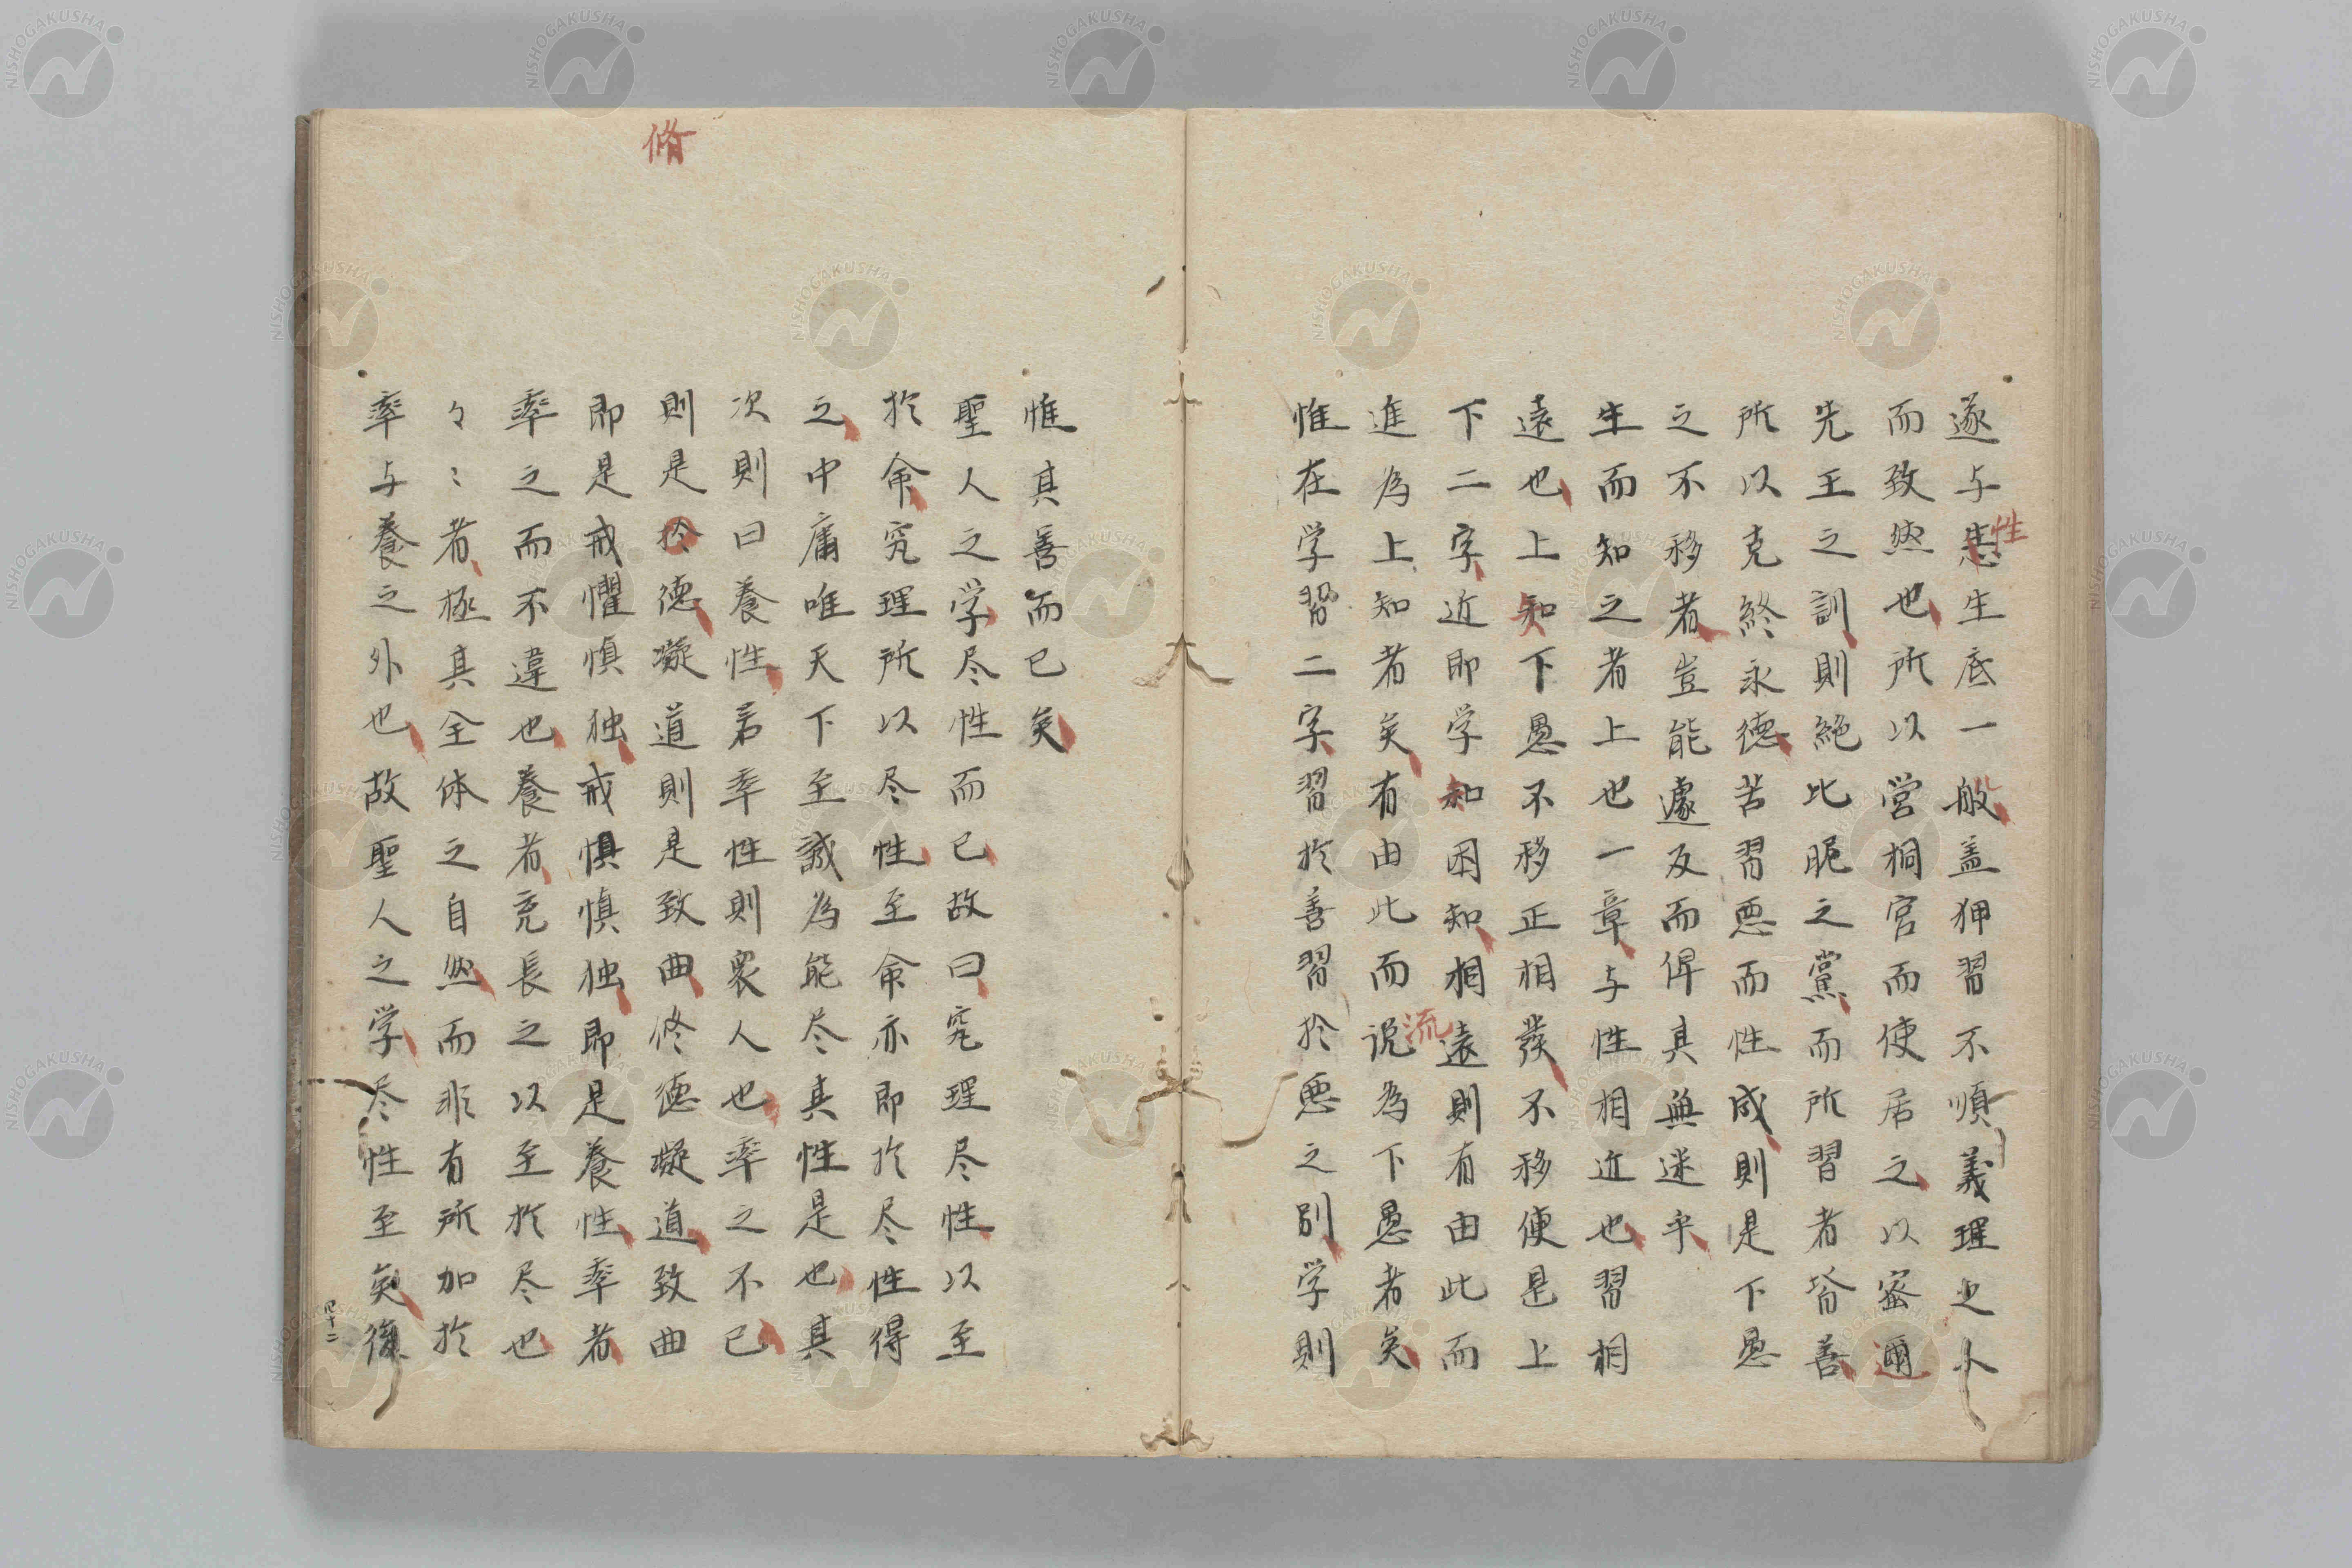 遂与恚生底一般盖狎習不順義理之人
性
而致然也所以営桐宮而使居之以密邇
先王之訓則絶比昵之黨而所習者皆善
所以克終永徳苦習悪而性成則是下愚
之不移者豈能遽反而俾其無迷乎
生而知之者上也一章与性相近也習相
遠也上知下愚不移正相発不移便是上
下二字近即学知困知相遠則有由此而
流
進為上知者矣有由此而説為下愚者矣
惟在学習二字習於善習於悪之別学則
惟其善而已矣
聖人之学尽性而已故曰究理尽性以至
於命究理所以尽性至命亦即於尽性得
之中庸唯天下至誠為能尽其性是也其
次則曰養性若率性則衆人也率之不已
脩
則是於徳凝道則是致曲修徳凝道致曲
即是戒懼慎独戒惧慎独即是養性率者
率之而不違也養者充長之以至於尽也
々〻者極其全体之自然而非有所加於
率与養之外也故聖人之学尽性至矣後
四十二
NISHOGAKUSHA